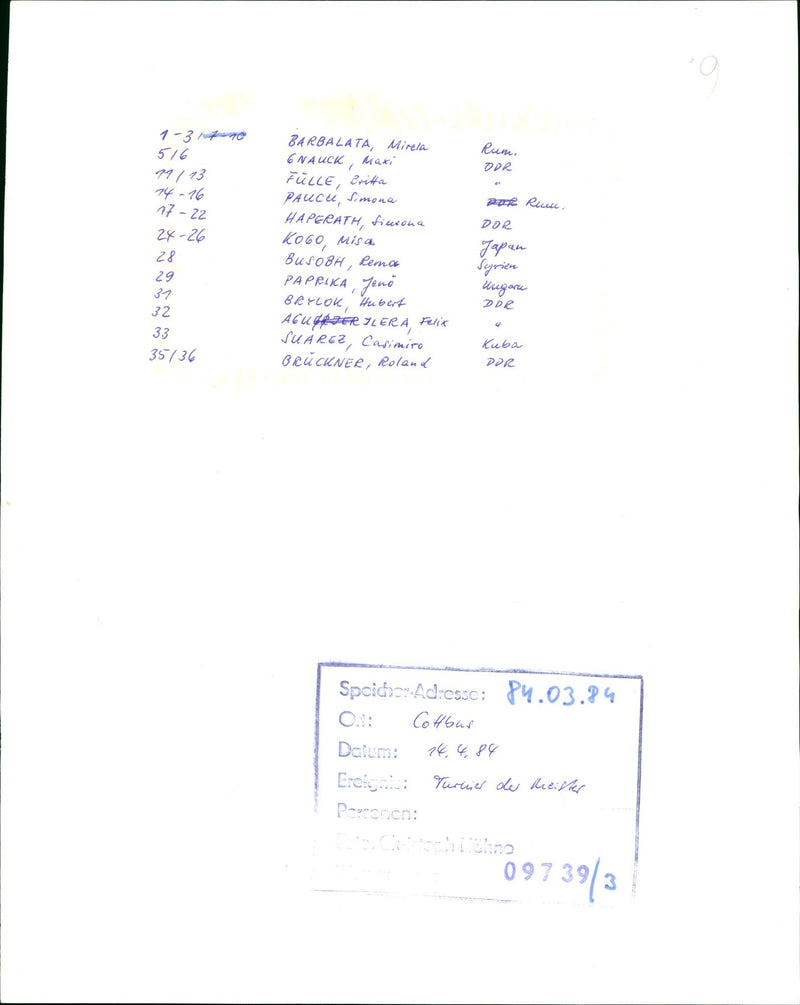 9
1-3 / 7-10 BARBALATA, Mirela Rum.
5/6 GNAUCK, Maxi DDR
11/13 FÜLLE, Britta "
14-16 PAUCU, Simona DDR Rum.
17-22 HAPERATH, Simona DDR
24-26 KOGO, Misa Japan
28 BUSOBH, Rema Syrien
29 PAPRIKA, Jenö Ungarn
31 BRYLOK, Hubert DDR
32 AGU ILERA, Felix "
33 SUAREZ, Casimiro Kuba
35/36 BRÜCKNER, Roland DDR
Speicher-Adresse: 84.03.84
Ort: Cottbus
Datum: 14.4.84
Ereignis: Turnier der Meister
Personen:
Foto: Christoph Höhne
09739/3